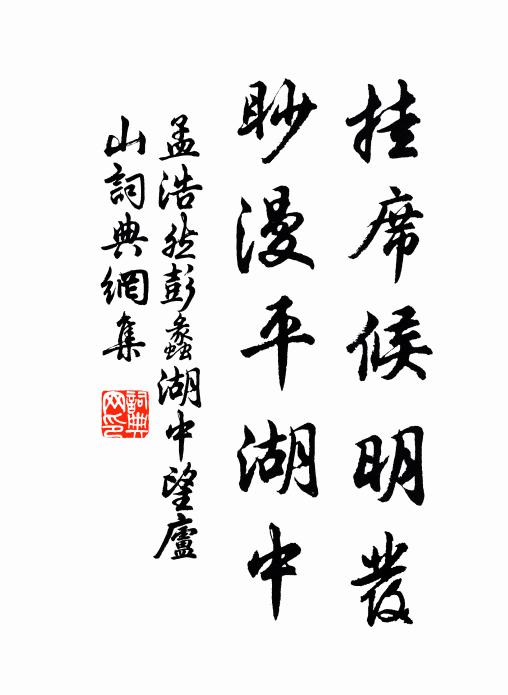 挂席候明發
眇漫平湖中
孟浩然彭蠡湖中望廬
山詞典網集
詞典网印